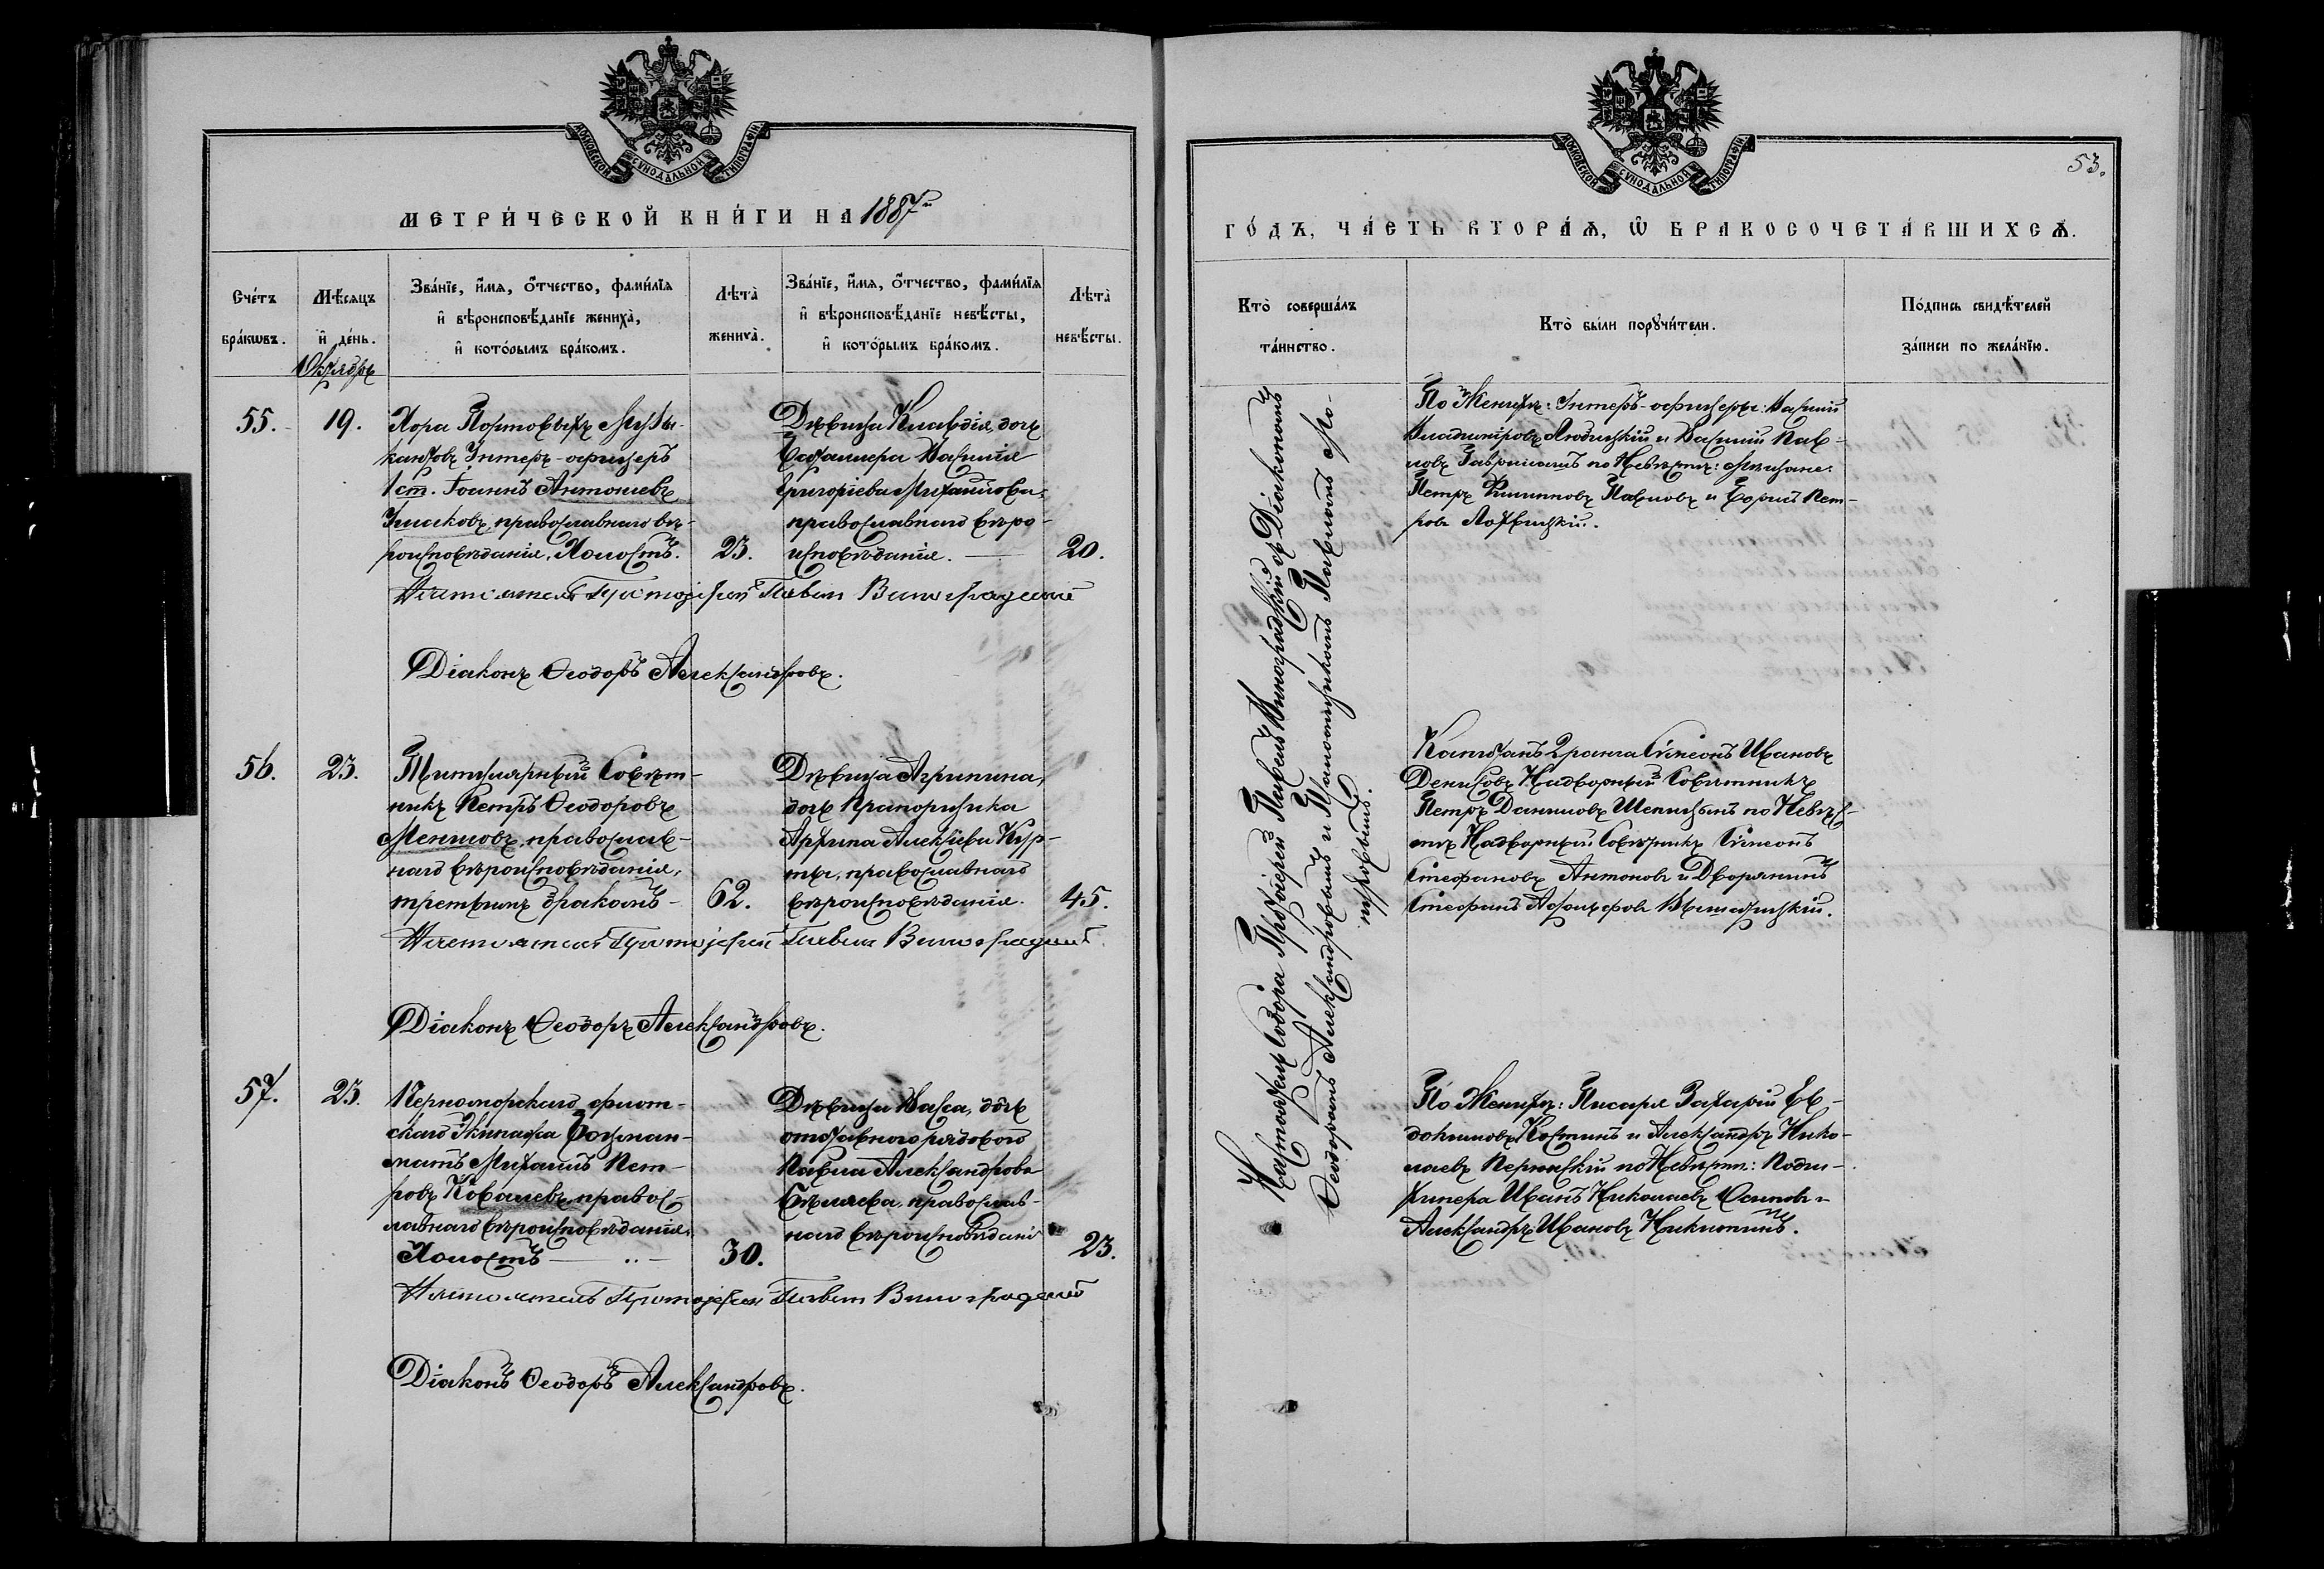 МОСКОВСКОЙ СѴНОДАЛЬНОЙ ТИПОГРАФІИ.
МЕТРИ́ЧЕСКОЙ КНИ́ГИ НА 1887й
Сче́тъ бра́кωвъ.
Мѣ́сяцъ и҆ де́нь.
Зва́нїе, и҆́мѧ, ѻ҆́тчество, фами́лїѧ
и҆ вѣроисповѣ́данїе жениха̀,
и҆ кото́рымъ бра́комъ.
Лѣта̀ жениха̀.
Зва́нїе, и҆́мѧ, ѻ҆́тчество, фами́лїѧ
и҆ вѣроисповѣ́данїе невѣ́сты,
и҆ кото́рымъ бра́комъ.
Лѣта̀ невѣ́сты.
Октябрь
55.
19.
Хора Портовыхъ Музы-
кантовъ Унтеръ-офицеръ
1 ст. Іоаннъ Антоніевъ
православнаго вѣ-
роисповѣданія, Холостъ.
23.
Дѣвица Клавдія, дочь
Василія
Григоріева Михайлова,
православнаго вѣро-
исповѣданія.
20.
Настоятель Протоіерей Павелъ Виноградскій
Діаконъ Ѳеодоръ Александровъ.
56.
23.
Титулярный Совѣт-
никъ Петръ Ѳеодоровъ
православ-
наго вѣроисповѣданія,
третьимъ бракомъ
62.
Дѣвица Агрипина,
дочь Прапорщика
Архипа Алексіева Кур-
православнаго
вѣроисповѣданія.
45.
Настоятель Протоіерей Павелъ Виноградскій
Діаконъ Ѳеодоръ Александровъ.
57.
23.
Черноморскаго флот-
скаго Экипажа Боцман-
матъ Михаилъ Пет-
ровъ Ковалевъ, правос-
лавнаго вѣроисповѣданія,
Холостъ
30.
Дѣвица Васса, дочь
отставного рядового
Павла Александрова
Бѣляева, православ-
наго вѣроисповѣданія
23.
Настоятель Протоіерей Павелъ Виноградскій
Діаконъ Ѳеодоръ Александровъ.
МОСКОВСКОЙ СѴНОДАЛЬНОЙ ТИПОГРАФІИ.
53.
ГО́ДЪ, ЧА́СТЬ ВТОРА́Ѧ, Ѽ БРАКОСОЧЕТА́ВШИХСѦ.
Кто̀ соверша́лъ та́инство.
Кто̀ бы́ли порꙋчи́тели.
По́дпись свидѣ́телей
за́писи по жела́нїю.
Настоятель Собора Протоіерей Павелъ Виноградскій съ Діакономъ
Ѳеодоромъ Александровымъ и Псаломщикомъ Павломъ
По Женихѣ: Унтеръ-офицеры: Василій
Владиміровъ и Василій Пав-
ловъ Гавриловъ по Невѣстѣ: Мѣщане:
Петръ Филиповъ Павловъ и Борисъ Пет-
ровъ
Капитанъ 2 ранга Симеонъ Ивановъ
Денисовъ Надворный Совѣтникъ
Петръ Даниловъ по Невѣс-
тѣ Надворный Совѣтникъ Симеонъ
Стефановъ Антоновъ и Дворянинъ
Стефанъ
По Женихѣ: Писаря Захарій Ев-
докимовъ Костинъ и Александръ Нико-
лаевъ по Невѣстѣ: Подш-
кипера Иванъ Николаевъ Осиповъ и
Александръ Ивановъ Никитинъ.